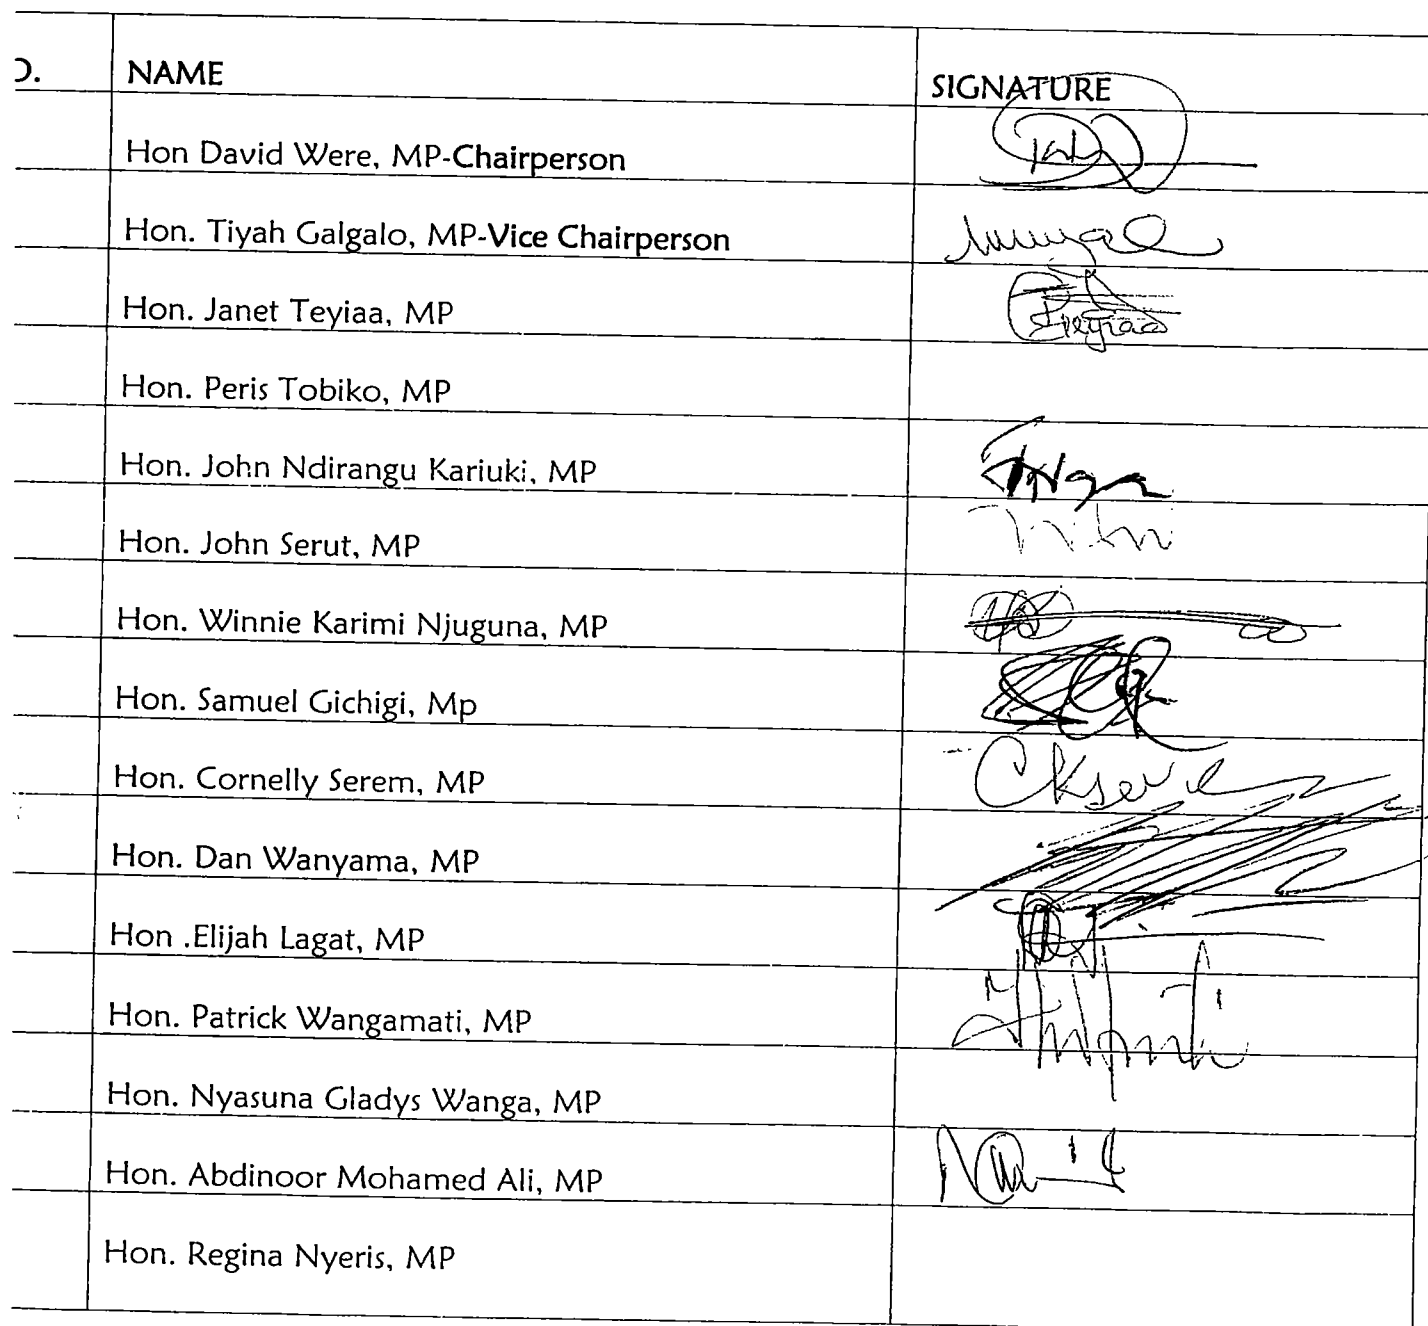 NAME SIGNATURE
Hon David Were, MP-Chairperson
Hon. Tiyah Galgalo, MP-Vice Chairperson
Hon. Janet Teyiaa, MP
Hon. Peris Tobiko, MP
Hon. John Ndirangu Kariuki, MP
Hon. John Serut, MP
Hon. Winnie Karimi Njuguna, MP
Hon. Samuel Gichigi, Mp
Hon. Cornelly Serem, MP
Hon. Dan Wanyama, MP
Hon .Elijah Lagat, MP
Hon. Patrick Wangamati, MP
Hon. Nyasuna Gladys Wanga, MP
Hon. Abdinoor Mohamed Ali, MP
Hon. Regina Nyeris, MP